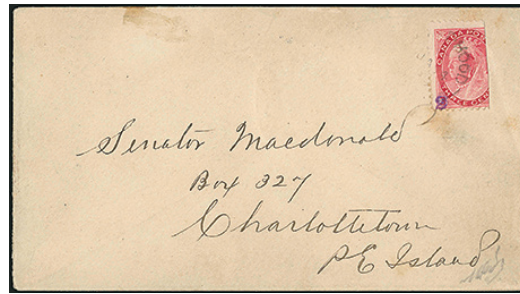 CANADA POS
2
THREE CEN
Senator Macdonald
Box 327
Charlottetown
PE Island